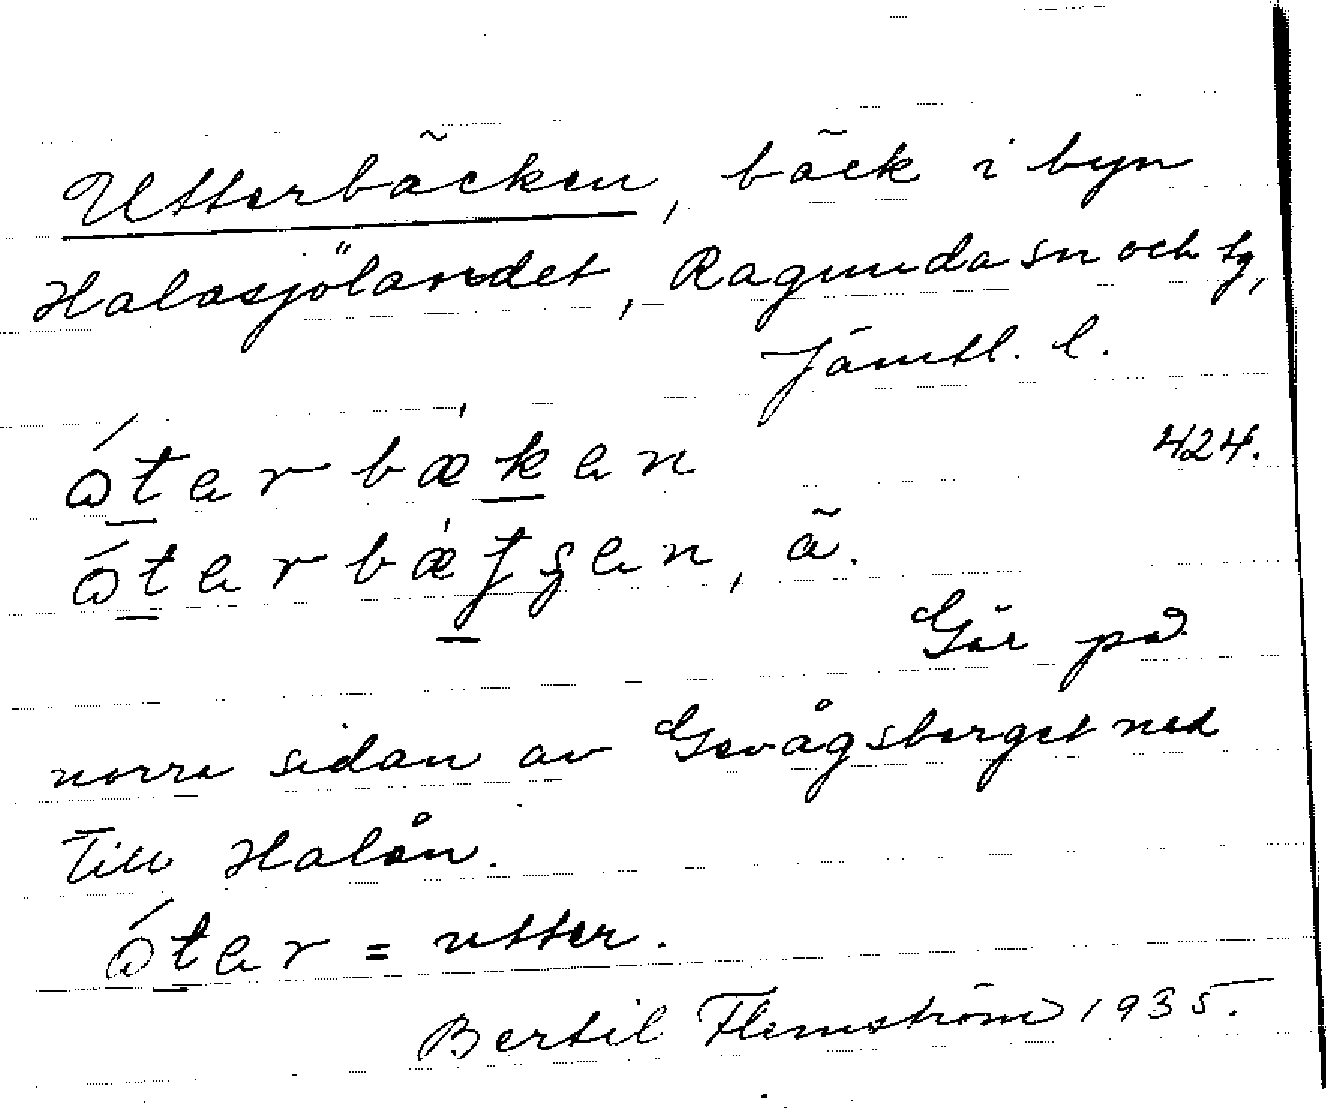 Utterbäcken, bäck i byn
Halasjölandet, Ragunda sn och tg,
Jämtl. l.
424.
ótərbæ̀kən
ótərbæ̀fʒən, ä.
Går på
norra sidan av Gevågsberget ned
till Halån.
ótər = utter.
Bertil Flemström 1935.